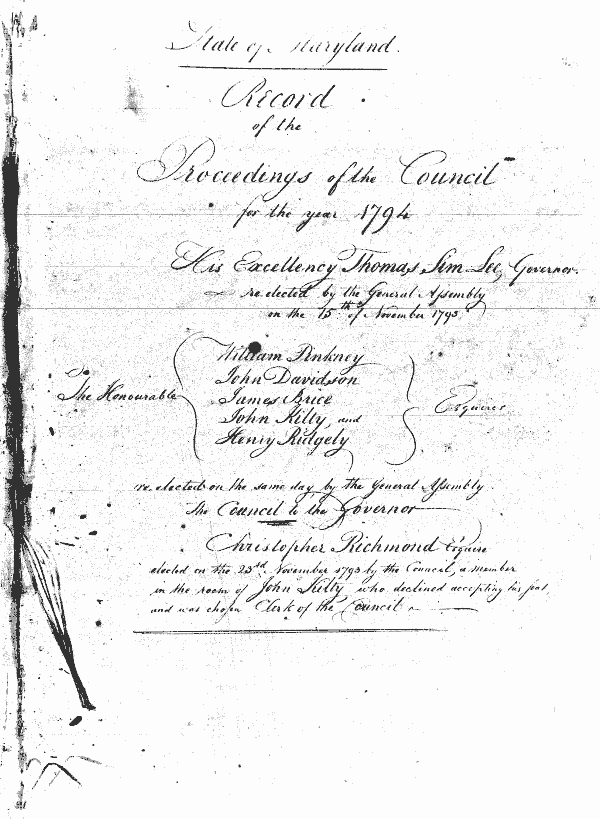 State of Maryland.
Record
of the
Proceedings of the Council
for the year 1794
His Excellency Thomas Sim Lee, Governor.
re elected by the General Assembly
on the 15th of November 1793
The Honourable
William Pinkney
John Davidson
James Brice
John Kilty, and
Henry Ridgely
Esquires
re elected on the same day by the General Assembly
the Council to the Governor
Christopher Richmond Esquire
elected on the 23rd November 1793 by the Council, a member
in the room of John Kilty who declined accepting his seat,
and was chosen Clerk of the Council